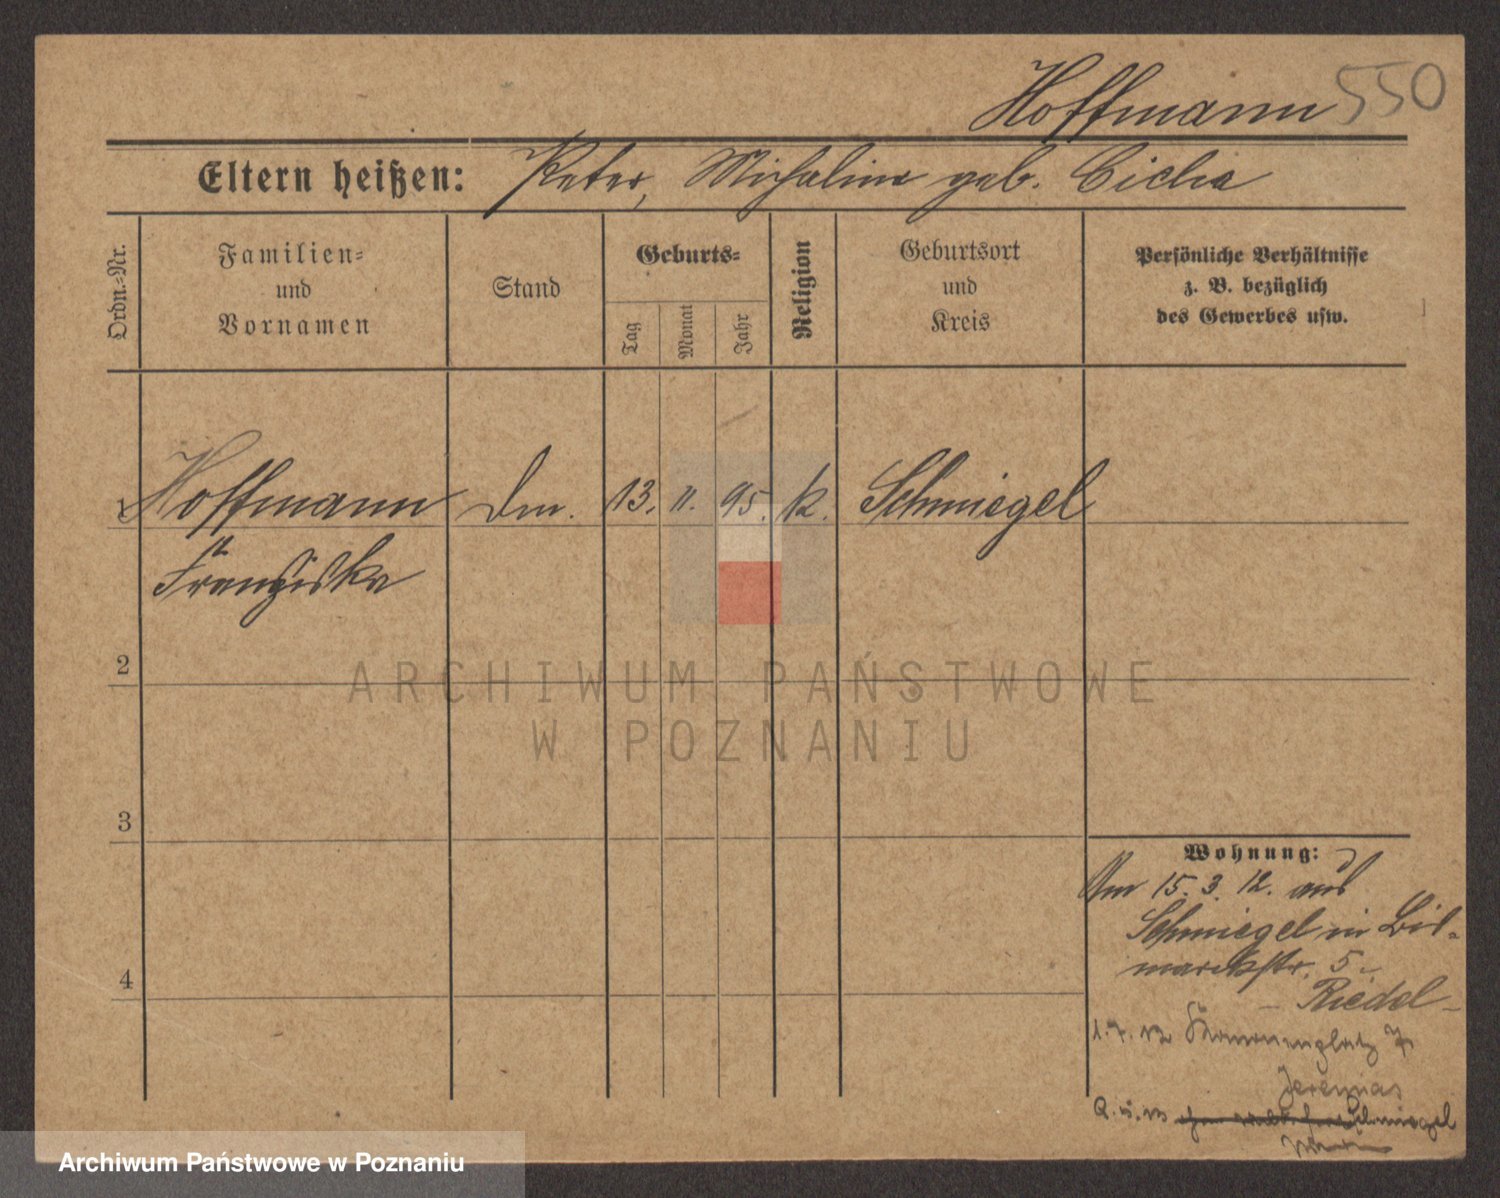 Hoffmann 550
Eltern heißen: Peter, Michaline geb. Cicha
Ordn.=Nr.
Familien=
und
Vornamen
Stand
Geburts=
Tag
Monat
Jahr
Religion
Geburtsort
und
Kreis
Persönliche Verhältnisse
z. B. bezüglich
des Gewerbes usw.
1 Hoffmann 13. 11. 95. k. Schmiegel
Franziska
2
ARCHIWUM PAŃSTWOWE
W POZNANIU
3
4
Wohnung:
Am 15. 3. 12. aus
Schmiegel in Bis-
marckstr. 5
- Riedel -
1. 7. 12 7
Jeremias
Schmiegel
Archiwum Państwowe w Poznaniu